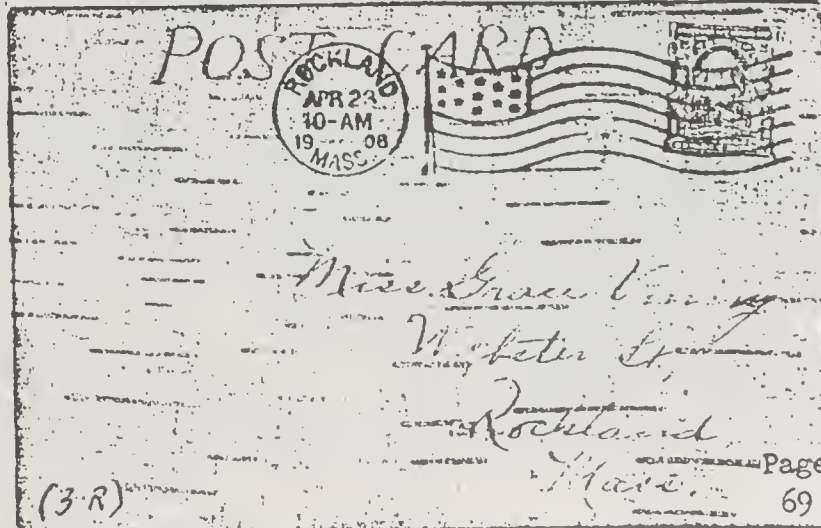 POST CARD
ROCKLAND
APR 23
10-AM
19 08
MASS.
Miss Grace Vining
Webster St
Rockland
Mass.
(3 R)
Page
69